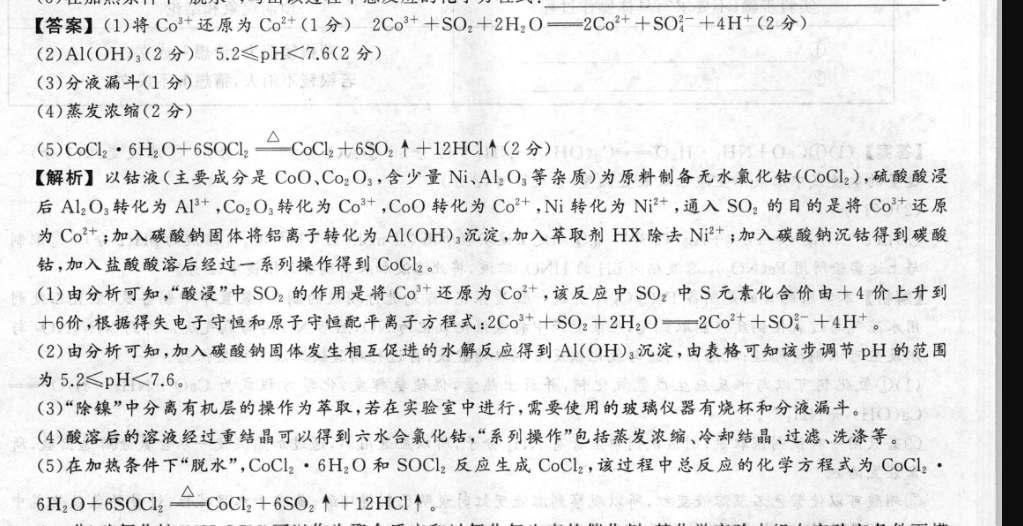 【答案】(1)将 Co³⁺ 还原为 Co²⁺(1 分) 2Co³⁺+SO₂+2H₂O══2Co²⁺+SO₄²⁻+4H⁺(2 分)
(2)Al(OH)₃(2 分) 5.2≤pH<7.6(2 分)
(3)分液漏斗(1 分)
(4)蒸发浓缩(2 分)
(5)CoCl₂·6H₂O+6SOCl₂ ≜ CoCl₂+6SO₂↑+12HCl↑(2 分)
【解析】以钴液(主要成分是 CoO、Co₂O₃,含少量 Ni、Al₂O₃等杂质)为原料制备无水氯化钴(CoCl₂),硫酸酸浸
后 Al₂O₃转化为 Al³⁺,Co₂O₃转化为 Co³⁺,CoO 转化为 Co²⁺,Ni 转化为 Ni²⁺,通入 SO₂ 的目的是将 Co³⁺还原
为 Co²⁺;加入碳酸钠固体将铝离子转化为 Al(OH)₃沉淀,加入萃取剂 HX 除去 Ni²⁺;加入碳酸钠沉钴得到碳酸
钴,加入盐酸酸溶后经过一系列操作得到 CoCl₂。
(1)由分析可知,“酸浸”中 SO₂ 的作用是将 Co³⁺还原为 Co²⁺,该反应中 SO₂ 中 S 元素化合价由+4 价上升到
+6价,根据得失电子守恒和原子守恒配平离子方程式:2Co³⁺+SO₂+2H₂O══2Co²⁺+SO₄²⁻+4H⁺。
(2)由分析可知,加入碳酸钠固体发生相互促进的水解反应得到 Al(OH)₃沉淀,由表格可知该步调节 pH 的范围
为 5.2≤pH<7.6。
(3)“除镍”中分离有机层的操作为萃取,若在实验室中进行,需要使用的玻璃仪器有烧杯和分液漏斗。
(4)酸溶后的溶液经过重结晶可以得到六水合氯化钴,“系列操作”包括蒸发浓缩、冷却结晶、过滤、洗涤等。
(5)在加热条件下“脱水”,CoCl₂·6H₂O 和 SOCl₂ 反应生成 CoCl₂,该过程中总反应的化学方程式为 CoCl₂·
6H₂O+6SOCl₂ ≜ CoCl₂+6SO₂↑+12HCl↑。